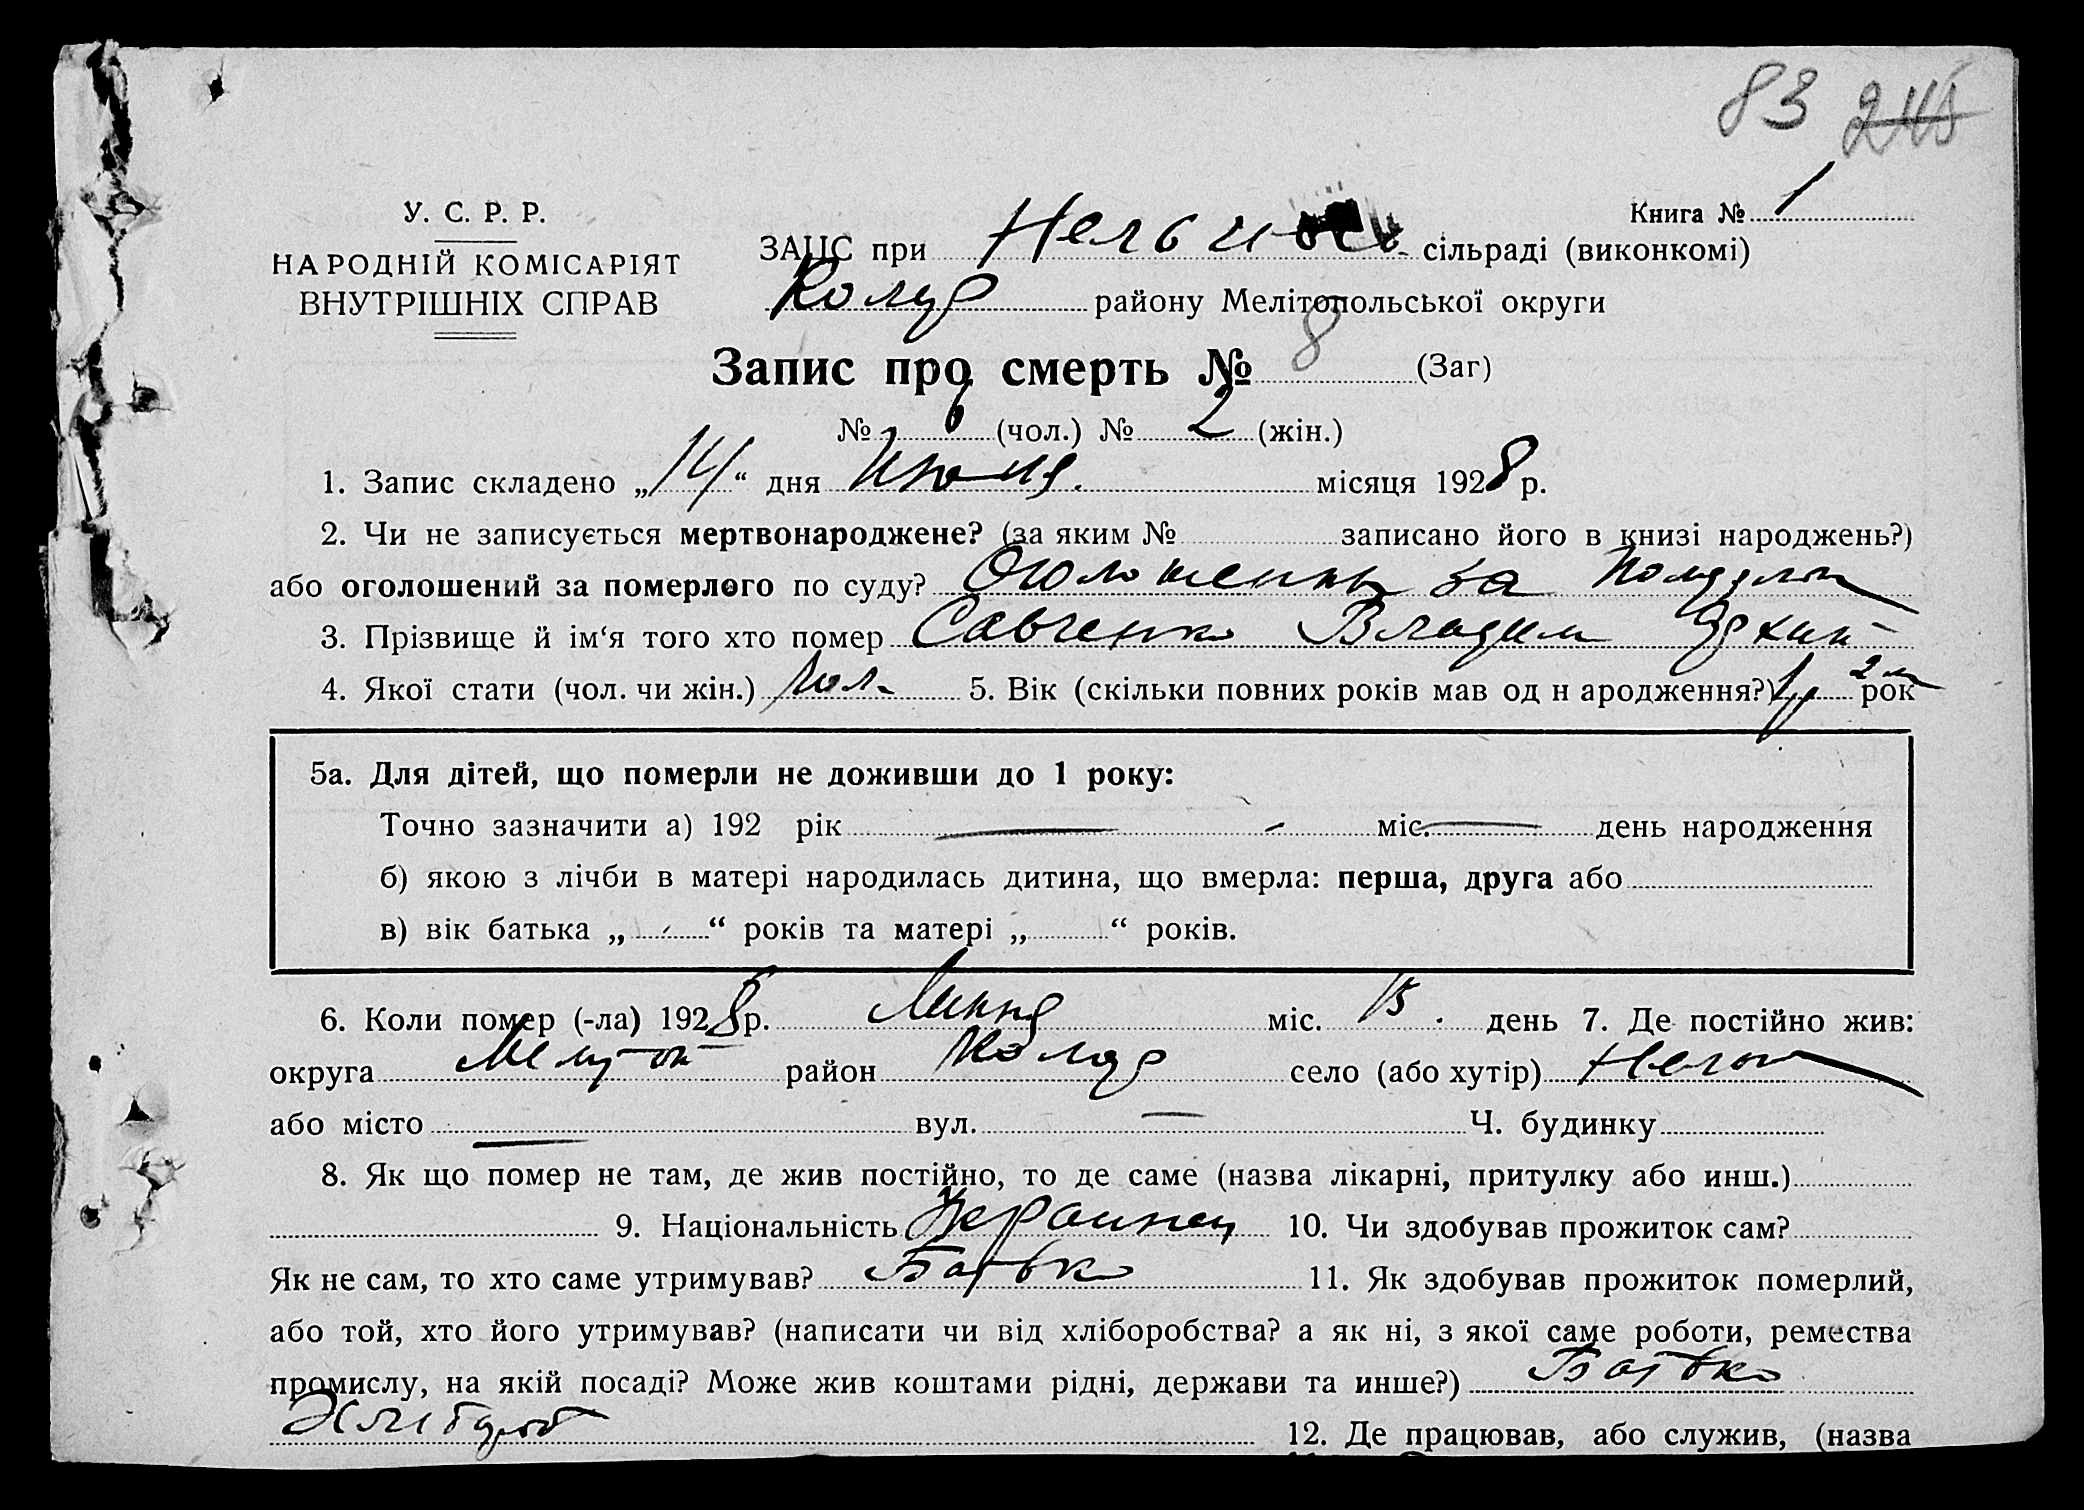 83 245
У. С. Р. Р.
НАРОДНІЙ КОМІСАРІЯТ
ВНУТРІШНІХ СПРАВ
Книга № 1
ЗАЦС при сільраді (виконкомі)
району Мелітопольської округи
Запис про смерть № 8 (Заг)
№ 6 (чол.) № 2 (жін.)
1. Запис складено „14“ дня місяця 1928 р.
2. Чи не записується мертвонароджене? (за яким № записано його в книзі народжень?)
або оголошений за померлого по суду? за
3. Прізвище й ім‘я того хто помер Савченко Владим
4. Якої стати (чол. чи жін.) чол. 5. Вік (скільки повних років мав од н ародження?) 1 рок
5а. Для дітей, що померли не доживши до 1 року:
Точно зазначити а) 192 рік — міс. — день народження
б) якою з лічби в матері народилась дитина, що вмерла: перша, друга або
в) вік батька „ “ років та матері „ “ років.
6. Коли помер (-ла) 1928 р. Липня міс. 13 день 7. Де постійно жив:
округа район село (або хутір)
або місто — вул. — Ч. будинку
8. Як що помер не там, де жив постійно, то де саме (назва лікарні, притулку або инш.)
9. Національність Украинец 10. Чи здобував прожиток сам?
Як не сам, то хто саме утримував? Батько 11. Як здобував прожиток померлий,
або той, хто його утримував? (написати чи від хліборобства? а як ні, з якої саме роботи, ремества
промислу, на якій посаді? Може жив коштами рідні, держави та инше?) Батько
12. Де працював, або служив, (назва